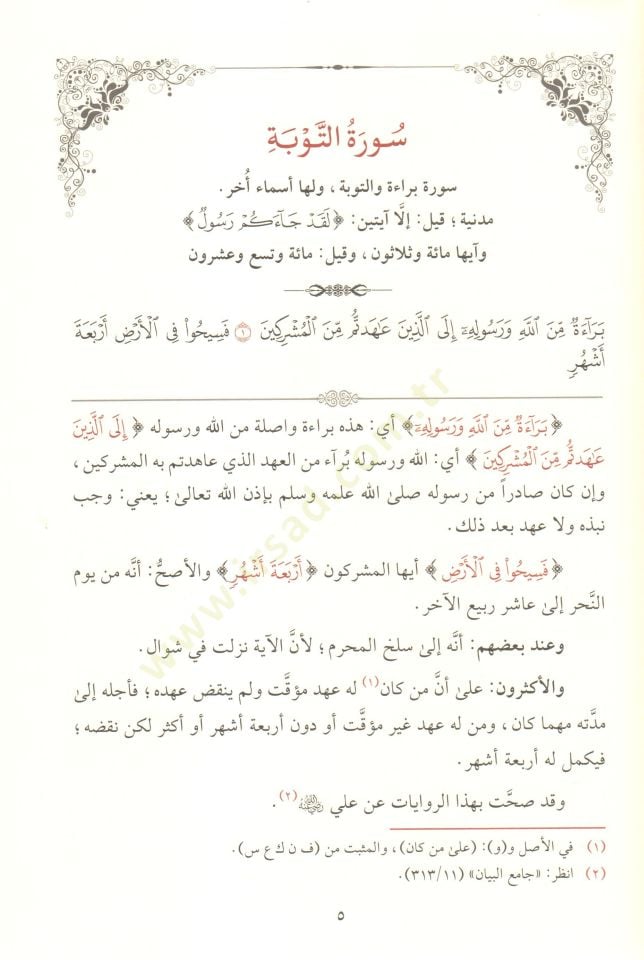 سُورَةُ التَّوْبَةِ
سورة براءة والتوبة ، ولها أسماء أُخر .
مدنية ؛ قيل: إلَّا آيتين: ﴿لَقَدْ جَاءَكُمْ رَسُولٌ﴾
وآيها مائة وثلاثون ، وقيل: مائة وتسع وعشرون
بَرَاءَةٌ مِّنَ اللَّهِ وَرَسُولِهِ إِلَى الَّذِينَ عَاهَدتُّم مِّنَ الْمُشْرِكِينَ ١ فَسِيحُوا فِي الْأَرْضِ أَرْبَعَةَ
أَشْهُرٍ
﴿بَرَاءَةٌ مِّنَ اللَّهِ وَرَسُولِهِ﴾ أي: هذه براءة واصلة من الله ورسوله ﴿إِلَى الَّذِينَ
عَاهَدتُّم مِّنَ الْمُشْرِكِينَ﴾ أي: الله ورسوله بُرآء من العهد الذي عاهدتم به المشركين ،
وإن كان صادراً من رسوله صلىٰ الله علمه وسلم بإذن الله تعالىٰ ؛ يعني: وجب
نبذه ولا عهد بعد ذلك .
﴿فَسِيحُوا فِي الْأَرْضِ﴾ أيها المشركون ﴿أَرْبَعَةَ أَشْهُرٍ﴾ والأصحُّ: أنَّه من يوم
النَّحر إلىٰ عاشر ربيع الآخر .
وعند بعضهم: أنَّه إلىٰ سلخ المحرم ؛ لأنَّ الآية نزلت في شوال .
والأكثرون: علىٰ أنَّ من كان(١) له عهد مؤقَّت ولم ينقض عهده ؛ فأجله إلىٰ
مدَّته مهما كان ، ومن له عهد غير مؤقَّت أو دون أربعة أشهر أو أكثر لكن نقضه ؛
فيكمل له أربعة أشهر .
وقد صحَّت بهذا الروايات عن علي رضي الله عنه(٢) .
(١) في الأصل و(و): (علىٰ من كان) ، والمثبت من (ف ن ك ع س) .
(٢) انظر: «جامع البيان» (٣١٣/١١) .
٥
www.irsad.com.tr